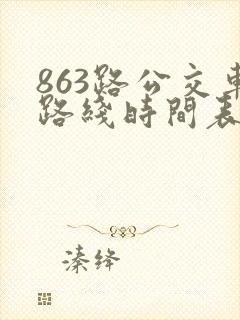 863路公交車
路綫時間表
溱绛